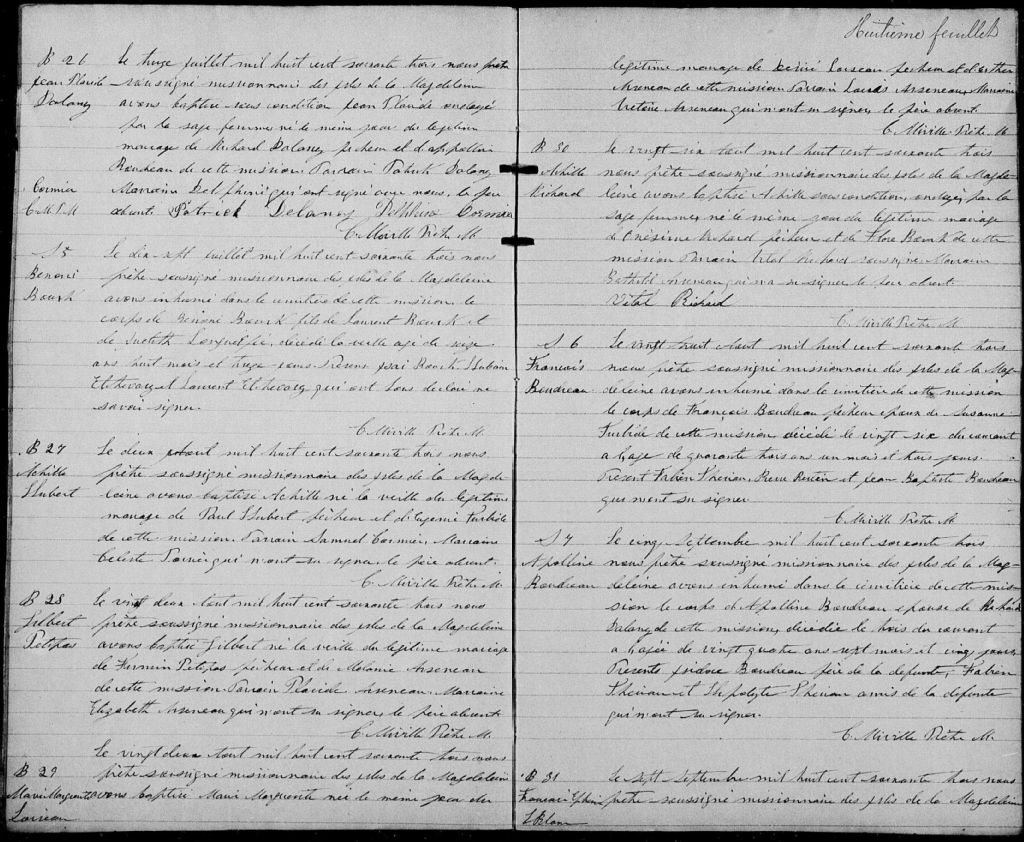 B 26
Jean Placide
Delaney
Cormier
C. M. P. M
Le treize juillet mil huit cent soixante trois nous prêtre
soussigné missionnaire des isles de la Magdeleine
avons baptisé sous condition Jean Placide ondoyé
par la sage femme né le même jour du légitime
mariage de Richard Delaney pêcheur et d'Appolline
Boudreau de cette mission. Parrain Patrick Delaney
Marraine Delphine qui ont signé avec nous, le père
absent. Patrick Delaney Delphine Cormier
C. Miville Prêtre M.
S 5
Benoni
Bourk
Le dix sept juillet mil huit cent soixante trois nous
prêtre soussigné missionnaire des isles de la Magdeleine
avons inhumé dans le cimetière de cette mission le
corps de Benoni Bourk fils de Laurent Bourk et
de Judith décédé la veille agé de
ans huit mois et treize jours. Présens Bourk Hubain
Etchevary et Laurent Etchevary qui ont tous déclaré ne
savoir signer.
C. Miville Prêtre M.
B 27
Achille
Hubert
Le deux août mil huit cent soixante trois nous
prêtre soussigné missionnaire des isles de la Magde-
leine avons baptisé Achille né la veille du légitime
mariage de Paul Hubert pêcheur et d'Eugenie Turbide
de cette mission. Parrain Samuel Cormier, Marraine
Celeste qui n'ont su signer, le père absent.
C. Miville Prêtre M.
B 28
Gilbert
Petitpas
Le vingt deux août mil huit cent soixante trois nous
prêtre soussigné missionnaire des isles de la Magdeleine
avons baptisé Gilbert né la veille du légitime mariage
de Firmin Petitpas pêcheur et de Melanie Arseneau
de cette mission. Parrain Placide Arseneau, Marraine
Elizabeth Arseneau qui n'ont su signer, le père absent.
C. Miville Prêtre M.
B 29
Marie Marguerite
Loiseau
Le vingt deux août mil huit cent soixante trois nous
prêtre soussigné missionnaire des isles de la Magdeleine
avons baptisé Marie Marguerite née le même jour du
Huitième feuillet
légitime mariage de Désiré Loiseau pêcheur et d'Esther
Arseneau de cette mission. Parrain Louis Arseneau, Marraine
Victoire Arseneau qui n'ont su signer, le père absent.
C. Miville Prêtre M.
B 30
Achille
Richard
Le vingt six août mil huit cent soixante trois
nous prêtre soussigné missionnaire des isles de la Magde-
leine avons baptisé Achille sous condition, ondoyé par la
sage femme, né le même jour du légitime mariage
d'Onésime Richard pêcheur et de Flore Bourk de cette
mission. Parrain Vital Richard soussigné, Marraine
Bathilde Arseneau qui n'a su signer, le père absent.
Vital Richard
C. Miville Prêtre M.
S 6
François
Boudreau
Le vingt huit Août mil huit cent soixante trois
nous prêtre soussigné missionnaire des isles de la Mag-
deleine avons inhumé dans le cimetière de cette mission
le corps de François Boudreau pêcheur époux de Susanne
Turbide de cette mission, décédé le vingt six du courant
à l'age de quarante trois ans un mois et trois jours.
Présent Fabien Thériau, Pierre et Jean Baptiste Boudreau
qui n'ont su signer
C. Miville Prêtre M.
S 7
Apolline
Boudreau
Le cinq Septembre mil huit cent soixante trois
nous prêtre soussigné missionnaire des isles de la Mag-
deleine avons inhumé dans le cimetière de cette mis-
sion le corps d'Apolline Boudreau épouse de Richard
Dalany de cette mission, décédée le trois du courant
à l'agée de vingt quatre ans sept mois et cinq jours.
Présents, Isidore Boudreau père de la défunte, Fabien
Thériau et Hipolyte Thériau amis de la défunte
qui n'ont su signer.
C. Miville Prêtre M.
B 31
François Ephrem
LeBlanc
Le sept Septembre mil huit cent soixante trois nous
prêtre soussigné missionnaire des isles de la Magdeleine